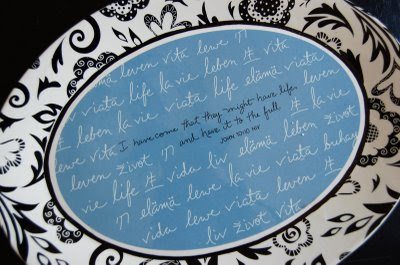 elämä leven vita lewe חי 生 vita
viata life la vie life elämä vita
生 leben la vie viata life 生 la vie
I have come that they might have life,
and have it to the full.
JOHN 10:10 NIV
lewe vita
leven život 生 vida liv elämä leben 生
vie life חי elämä lewe la vie viata buhay
vida lewe viata leven 生
liv život vita